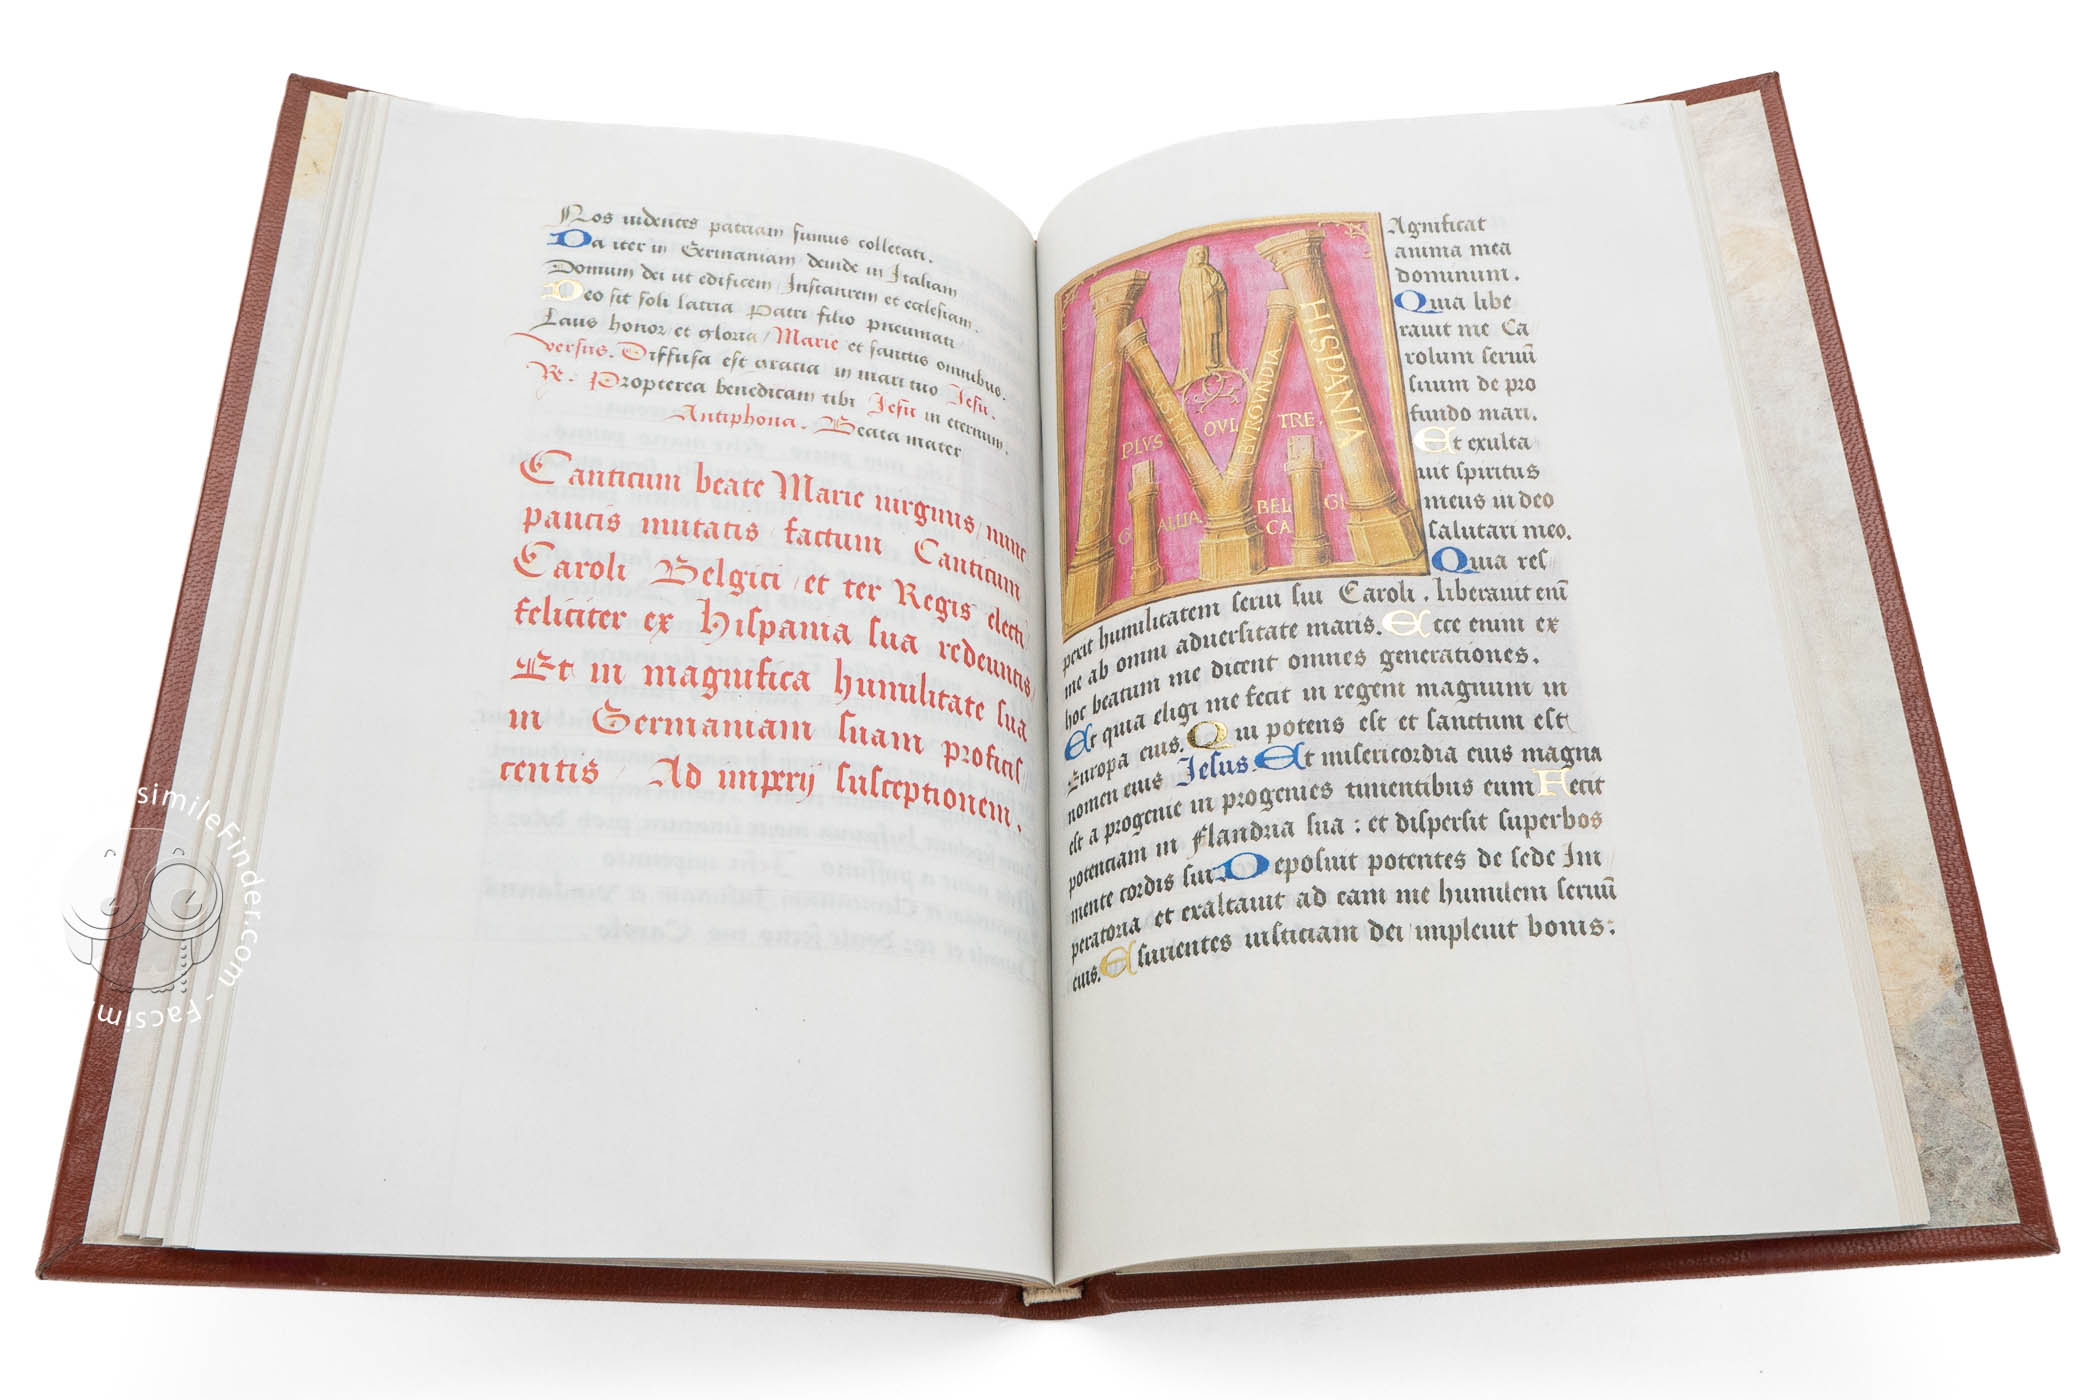 Nos uidentes patriam sumus colletati.
Da iter in Germaniam deinde in Italiam
Domum dei ut edificem / Instaurem et ecclesiam.
Deo sit soli latria Patri filio pneumati
Laus honor et gloria / Marie et sanctis omnibus.
versus. Diffusa est gracia in mari tuo Jesu.
Re. Propterea benedicam tibi Jesu in eternum.
Antiphona. Beata mater
Canticum beate Marie uirginis / nunc
paucis mutatis factum Canticum
Caroli Belgici / et ter Regis electi /
feliciter ex Hispania sua redeuntis /
Et in magnifica humilitate sua
in Germaniam suam proficis /
centis / Ad imperij susceptionem.
HISPANIA
BVRGVNDIA
PLVS OVLTRE.
GALLIA BELGICA
Agnificat
anima mea
dominum.
Quia libe
rauit me Ca
rolum seruū
suum de pro
fundo mari.
Et exulta
uit spiritus
meus in deo
salutari meo.
Quia res
pexit humilitatem serui sui Caroli. liberauit eni
me ab omni aduersitate maris. Ecce enim ex
hoc beatum me dicent omnes generationes.
Et quia eligi me fecit in regem magnum in
Europa eius. Qui potens est et sanctum est
nomen eius Jesus. Et misericordia eius magna
est a progenie in progenies timentibus eum Fecit
potenciam in Flandria sua : et dispersit superbos
mente cordis sui. Deposuit potentes de sede Im
peratoria et exaltauit ad eam me humilem seruū
eius. Esurientes iusticiam dei impleuit bonis:
simileFinder.com - Facsim